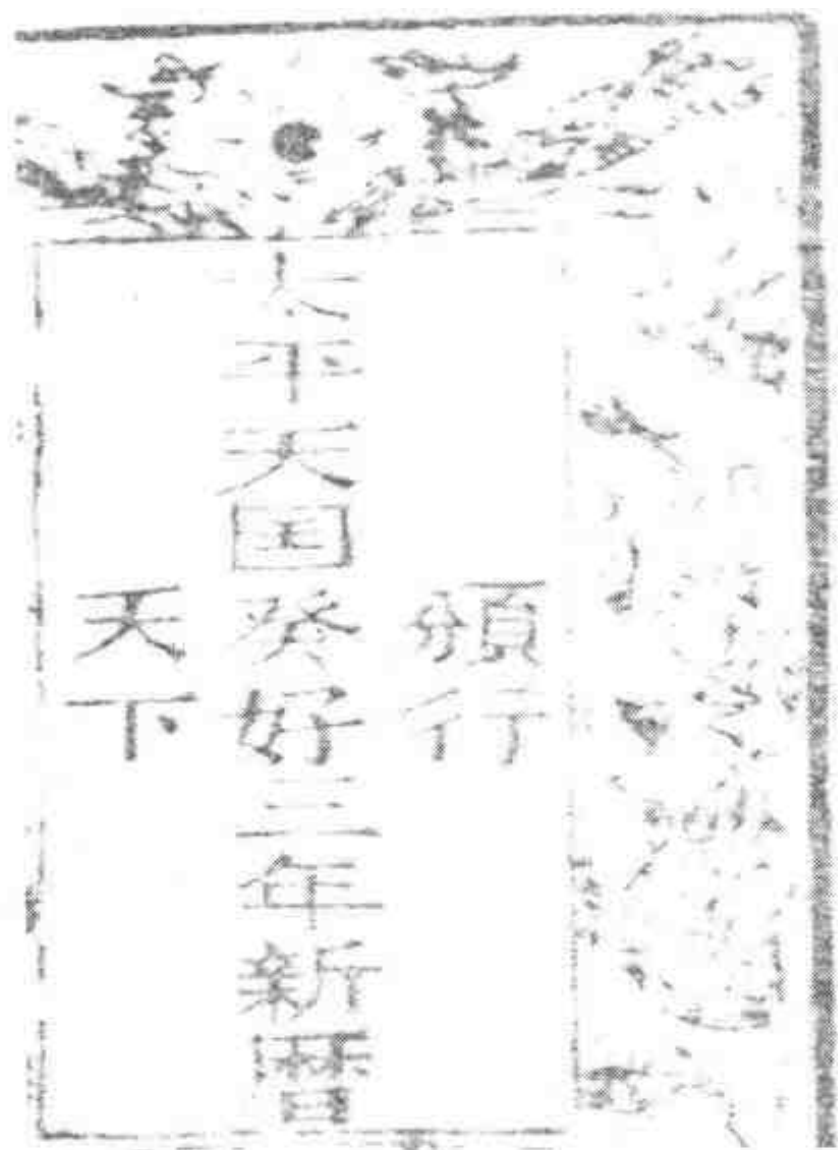 頒行
太平天囯癸好三年新曆
天下